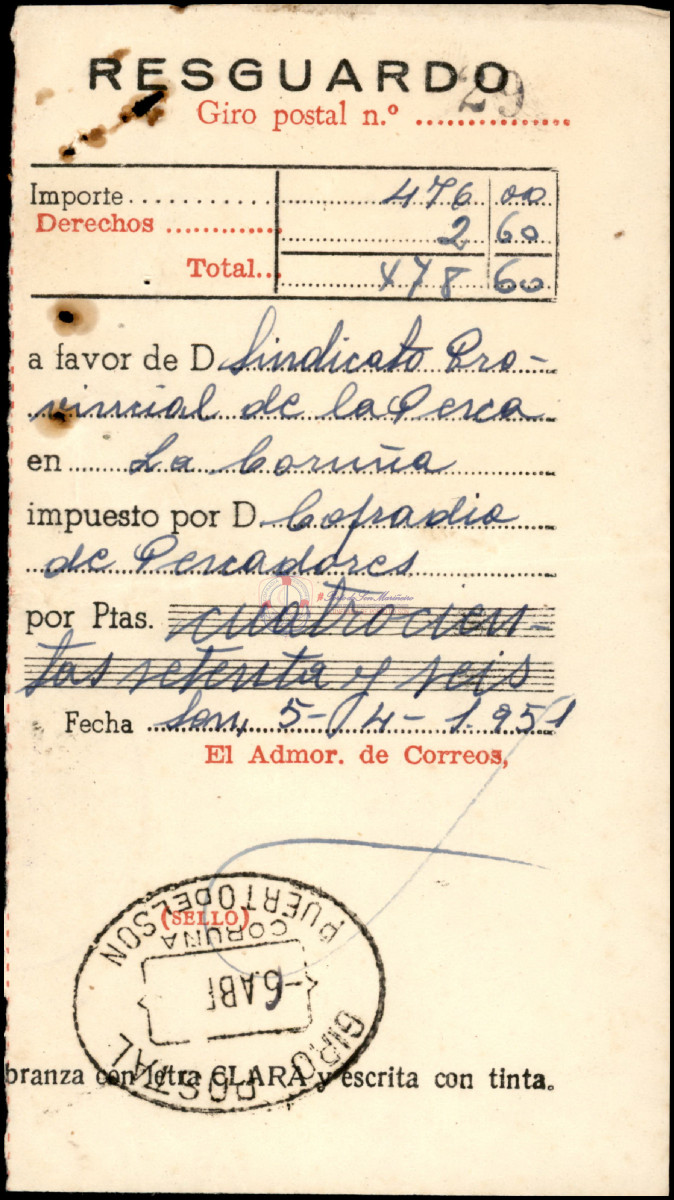 RESGUARDO
Giro postal n.º 29
Importe 476 00
Derechos 2 60
Total 478 60
a favor de D Sindicato Pro-
vincial de la Pesca
en La Coruña
impuesto por D Cofradia
de Pescadores
por Ptas. cuatrocien-
tas setenta y seis
Fecha Son, 5-4-1.951
El Admor. de Correos,
(SELLO)
PUERTO DEL SON
CORUÑA
-6 ABR
GIRO POSTAL
branza con letra CLARA y escrita con tinta.